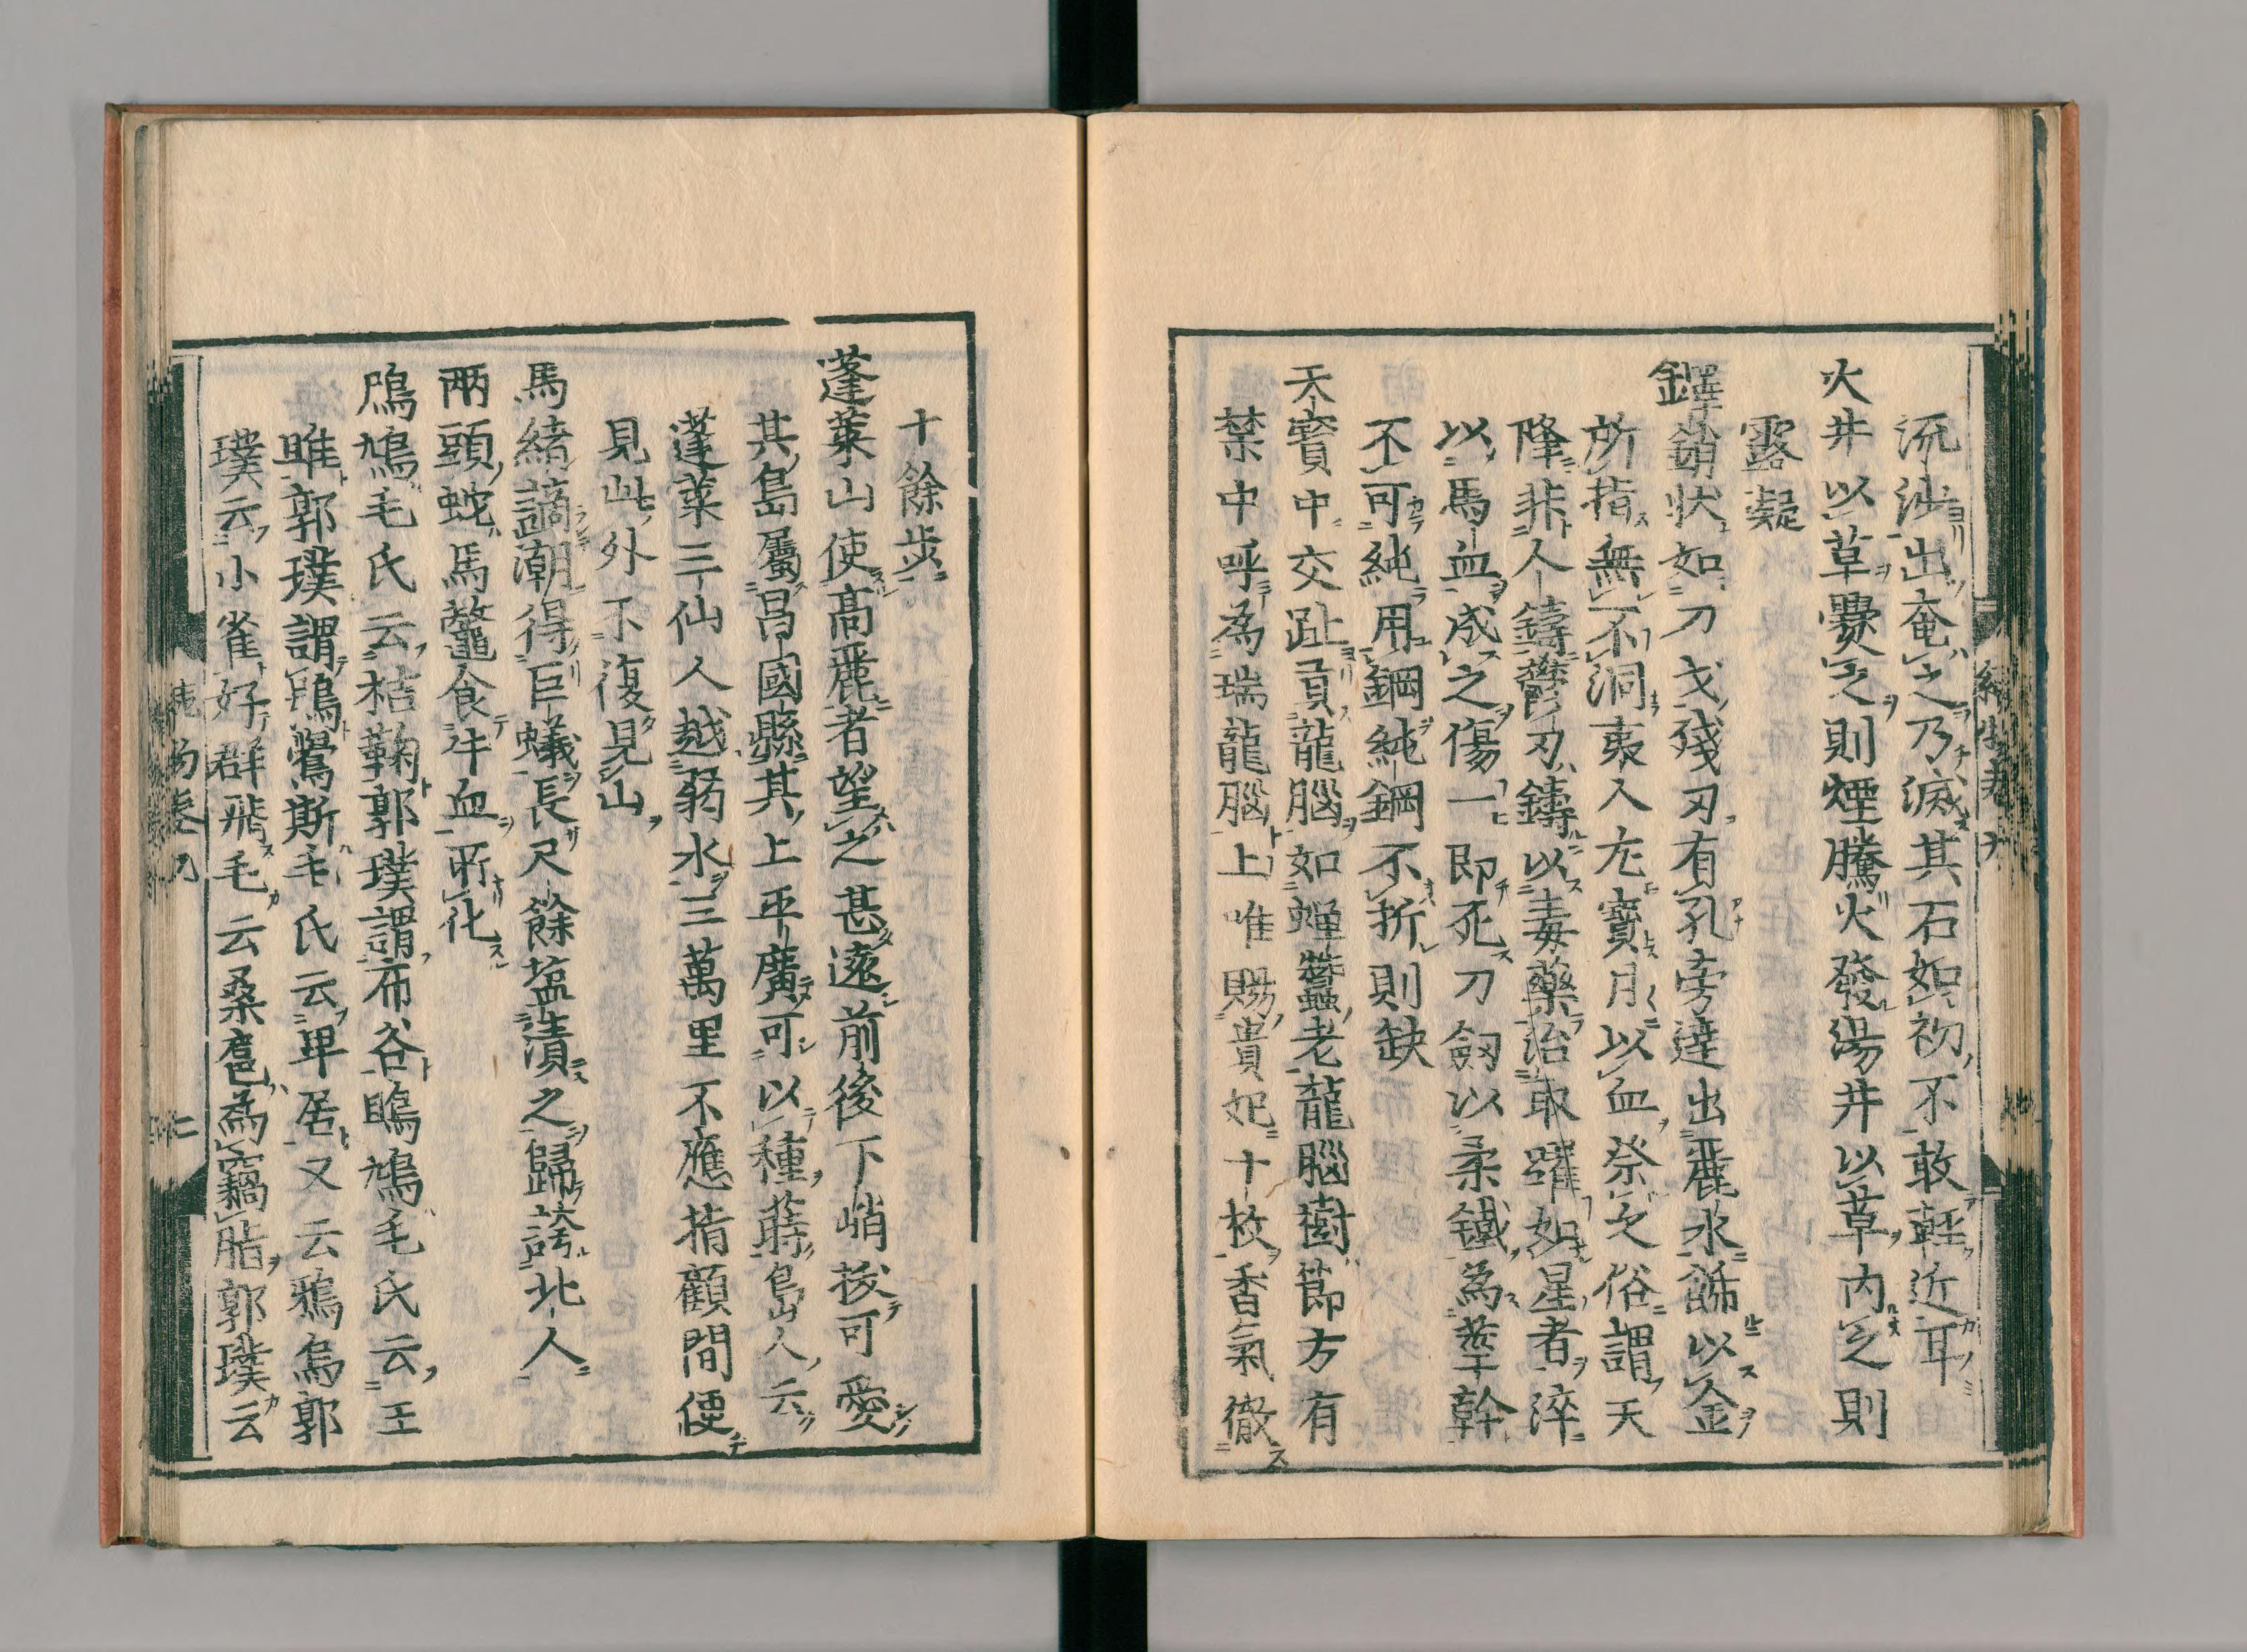 流沙出奄之乃滅其石如初不敢輕近耳
火井以草爨之則煙騰火發湯井以草内之則
露凝
鐸鞘状如刀戈殘刃有孔旁達出麗水餙以金
所指無不洞夷人尤寳月以血祭之俗謂天
降非人鑄欝刃鑄以毒藥冶取躍如星者淬
以馬血成之傷一即死刀劔以柔鐵為莖幹
不可純用鋼純鋼不折則缺
天寳中交趾貢龍腦如蟬蠶老龍腦樹節方有
禁中呼為瑞龍腦上唯賜貴妃十枚香氣徹
十餘歩
蓬莱山使髙麗者望之甚遠前後下峭拔可愛
其島屬昌國縣其上平廣可以種蒔島人云
蓬莱三仙人越弱水三萬里不應指顧間便
見此外不復見山
馬緒謫潮得巨蟻長尺餘塩漬之歸誇北人
兩頭蛇馬鼈食牛血所化
鳲鳩毛氏云桔鞠郭璞謂布谷鵙鳩毛氏云王
雎郭璞謂鵰鸒斯毛氏云卑居又云鴉烏郭
璞云小雀好群飛毛云桑扈為竊脂郭璞云